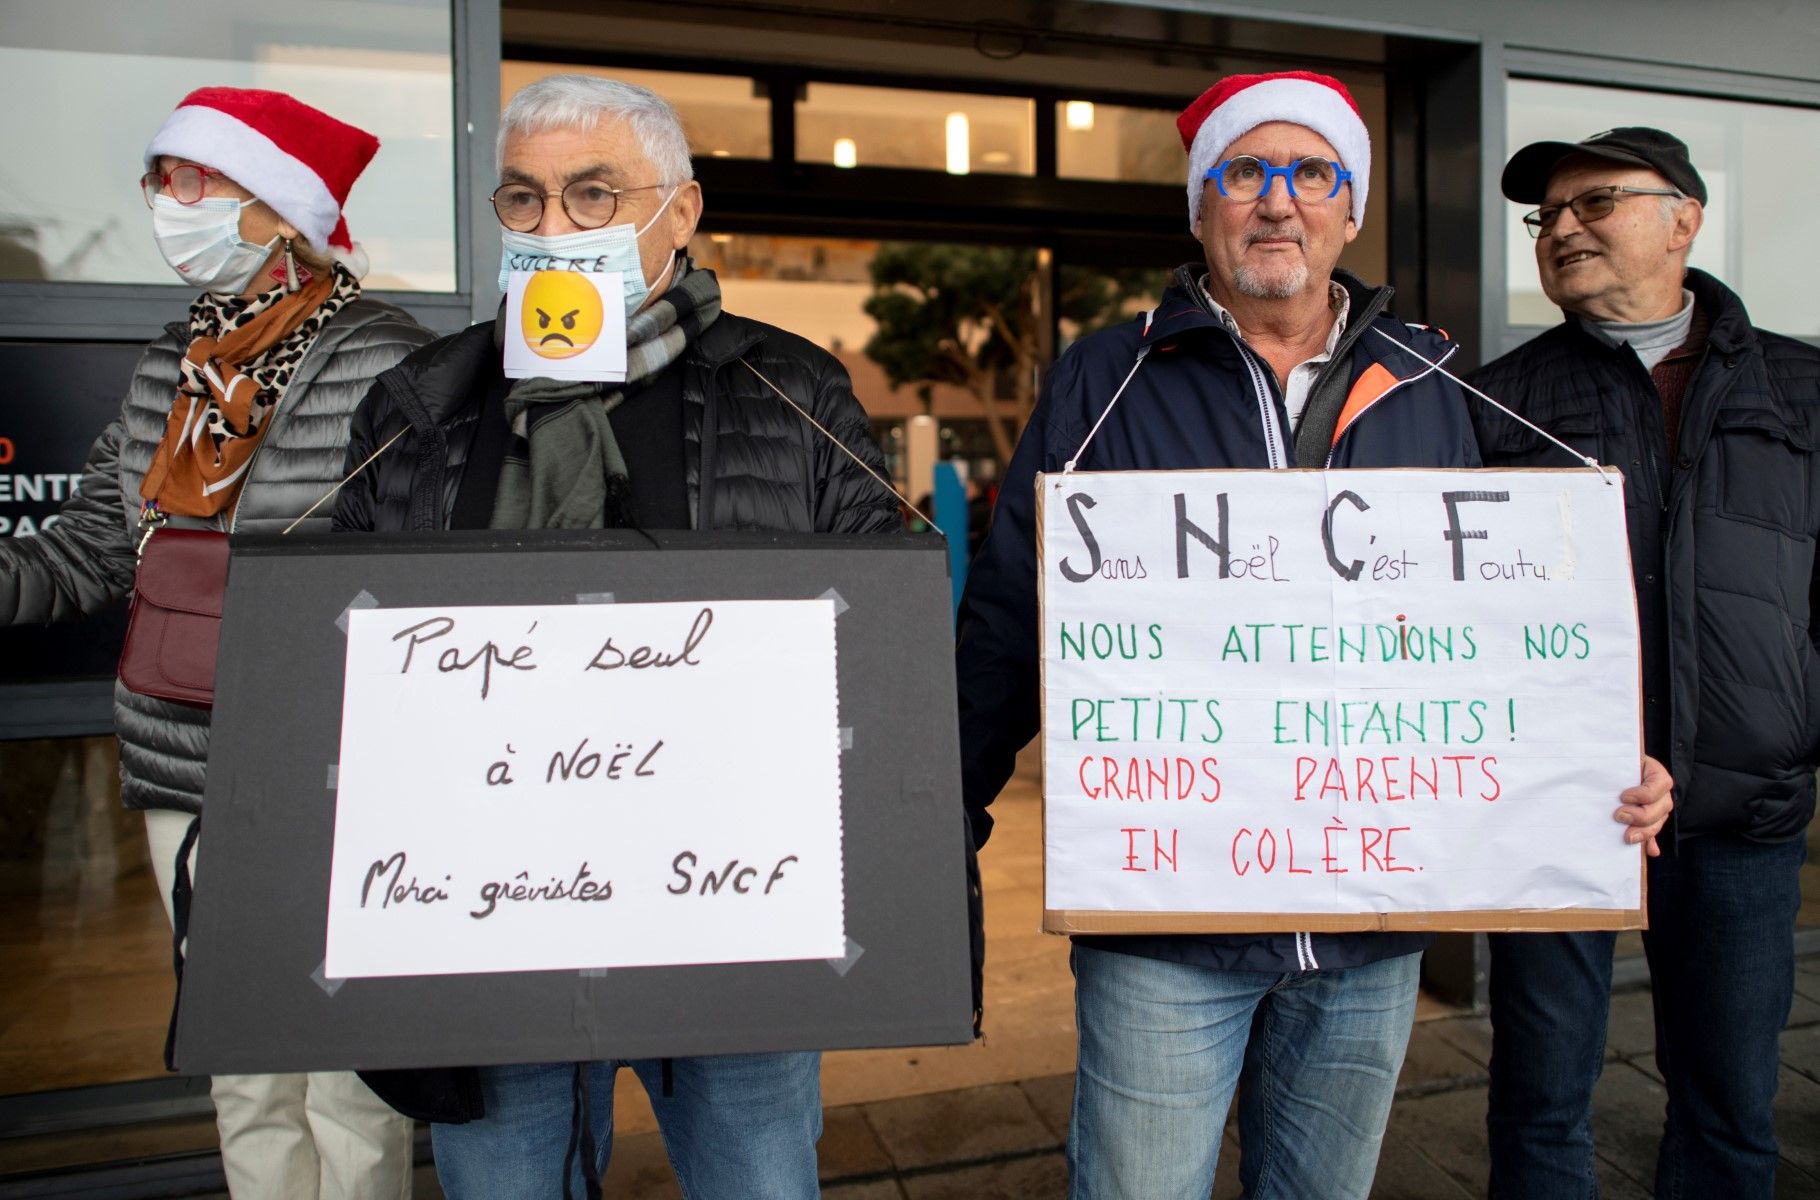 COLERE
Papé seul
à NOËL
Merci grêvistes SNCF
Sans Noël C'est Foutu.!
NOUS ATTENDiONS NOS
PETITS ENFANTS!
GRANDS PARENTS
EN COLÈRE.
0
ENTE
PAC